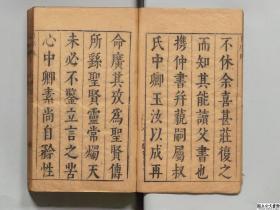 不休余喜甚莊復之
而知其能讀父書也
携仲書并蓺嗣屬叔
氏中卿玉汝以成再
命廣其攷為聖賢傳
所繇聖賢靈常燭天
未必不鑒立言之苦
心中卿素尚自矜性